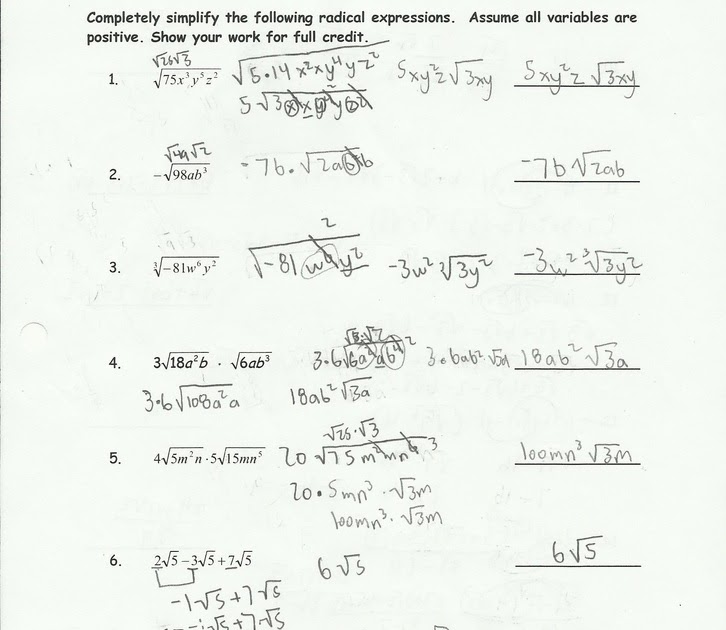 Completely simplify the following radical expressions. Assume all variables are
positive. Show your work for full credit.
√25√3
1. √75x³y⁵z² √5·14 x²xy⁴yz² 5xy²z√3xy 5xy²z √3xy
5√3
2. √49√2
-√98ab³ -7b·√2ab -7b√2ab
3. ∛-81w⁶y² √-81 y² -3w² ∛3y² -3w² ∛3y²
2
4. 3√18a²b · √6ab³ 3·6 3·6ab²√3a 18ab² √3a
3·6√108a²a 18ab²√3a
√25·√3
5. 4√5m²n · 5√15mn⁵ 20 √75m²mn⁶ 3 100mn³ √3m
20·5mn³·√3m
100mn³·√3m
6. 2√5-3√5+7√5 6√5 6√5
-1√5+7√5
-1√5+7√5